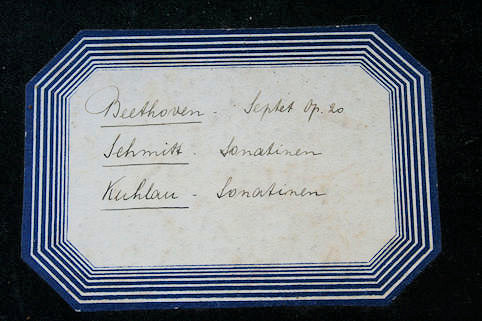 Beethoven - Septet Op. 20
Schmitt - Sonatinen
Kuhlau - Sonatinen